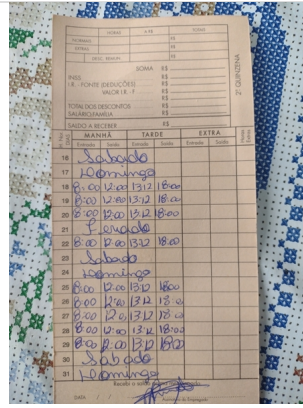 HORAS A R$ TOTAL
NORMAIS R$
EXTRAS R$
DESC. REMUN. R$
SOMA R$
INSS R$
I.R. - FONTE (DEDUÇÕES) R$
VALOR I.R. - F R$
R$
TOTAL DOS DESCONTOS R$
SALÁRIO/FAMÍLIA R$
SALDO A RECEBER R$
2ª QUINZENA
MANHÃ TARDE EXTRA
Entrada Saída Entrada Saída Entrada Saída
16 Sabado
17 Domingo
18 8:00 12:00 13:12 18:00
19 8:00 12:00 13:12 18:00
20 8:00 12:00 13:12 18:00
21 Feriado
22 8:00 12:00 13:12 18:00
23 Sabado
24 Domingo
25 8:00 12:00 13:12 18:00
26 8:00 12:00 13:12 18:00
27 8:00 12:00 13:12 18:00
28 8:00 12:00 13:12 18:00
29 8:00 12:00 13:12 18:00
30 Sabado
31 Domingo
Recebi o saldo
DATA / /
Assinatura do Empregado